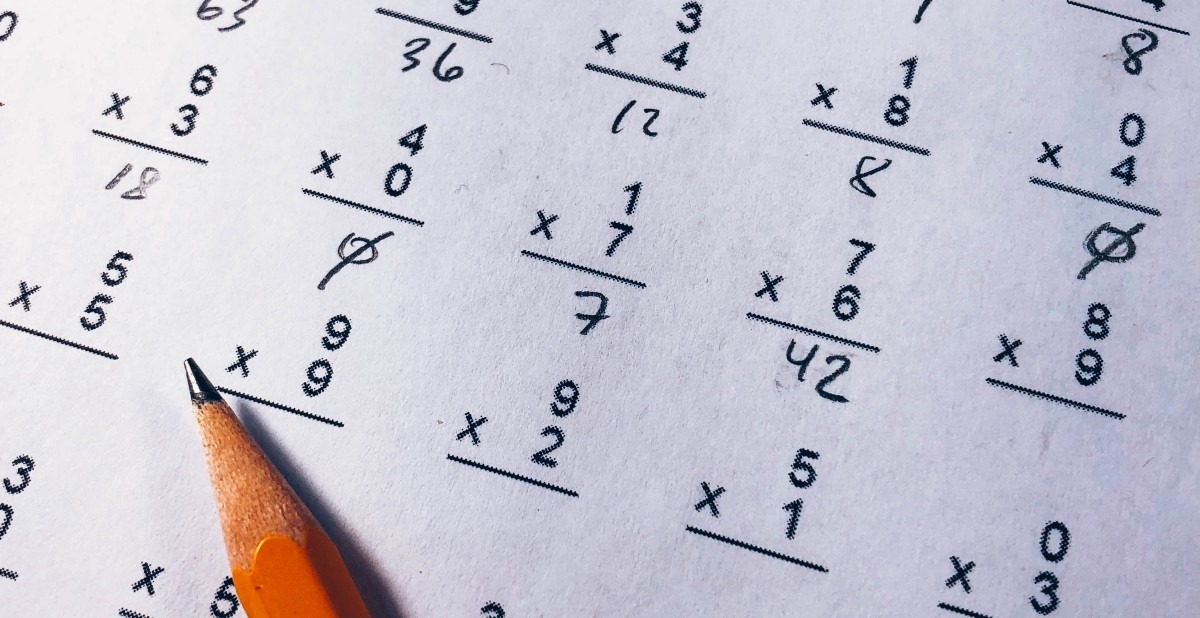 8
63
9
36
3
× 4
12
1
× 8
8
0
× 4
0
6
× 3
18
4
× 0
0
1
× 7
7
7
× 6
42
8
× 9
5
× 5
9
× 9
9
× 2
5
× 1
0
× 3
3
×